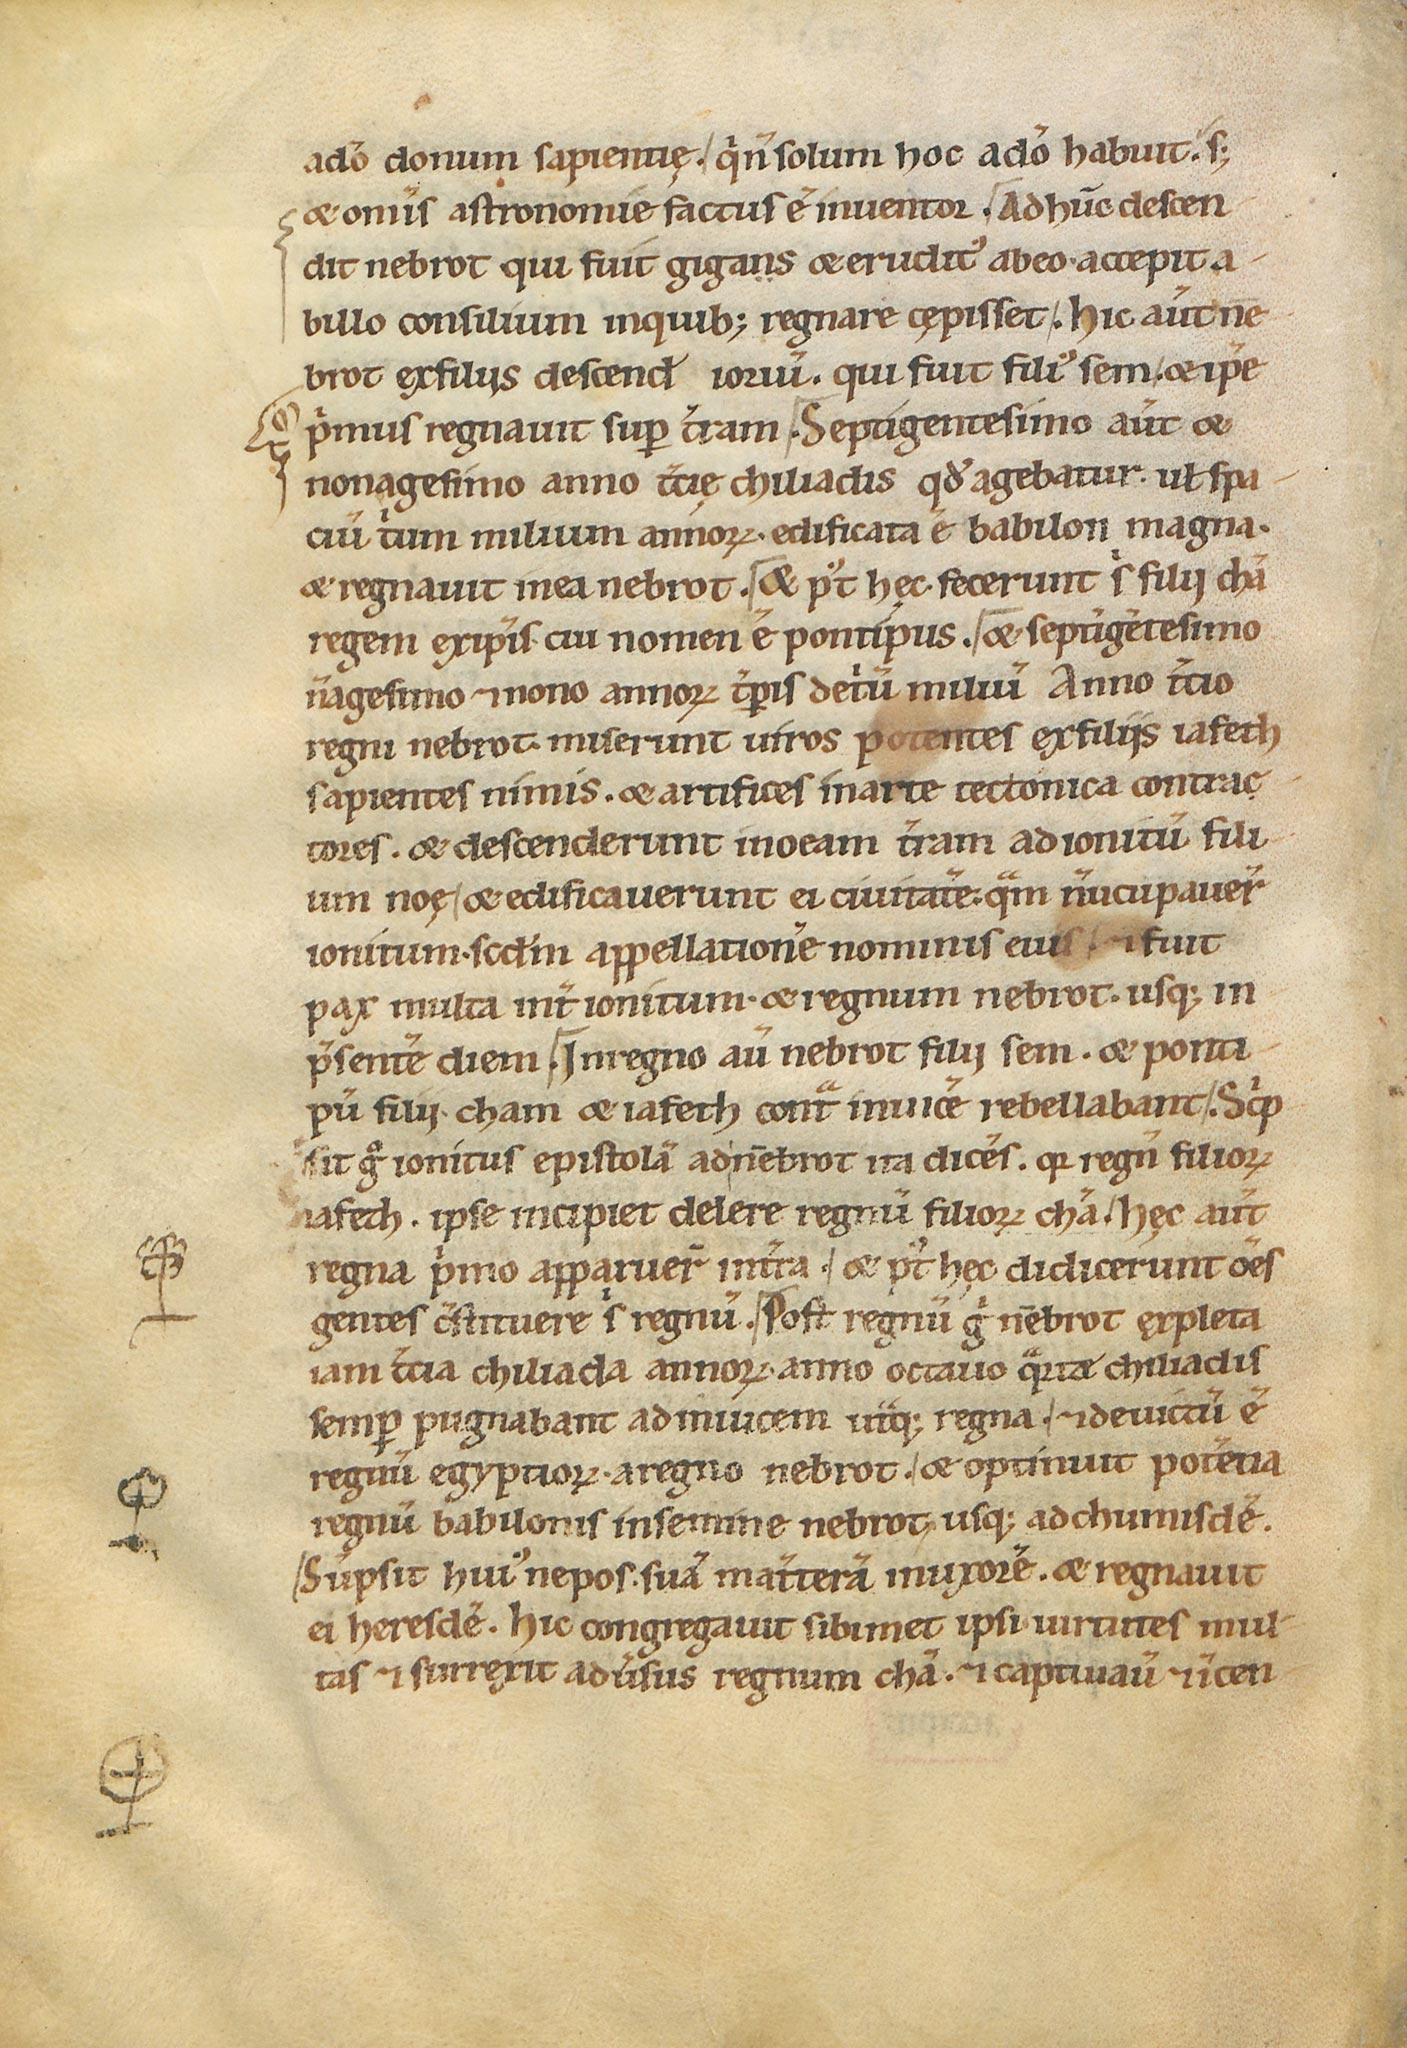 adō donum sapientię. q̇ n̄ solum hoc adō habuit. s;
& om̄is astronomie factus ē inventor. Ad hūc descen
dit nebrot qui fuit gigans & erudit᷒ ab eo. accepit a-
b illo consilium in quib; regnare cępisset. hic aūt ne
brot ex filiis descend̄ ioriū. qui fuit fili᷒ sem. & ip̄e
p̍mus regnauit sup̱ t̄ram. Septigentesimo aūt &
nonagesimo anno t̄cię chiliadis qđ agebatur. uł spa-
ciū t̍um milium annoꝝ. edificata ē babilon magna.
& regnauit in ea nebrot. & p᷒t hęc fecerunt s̍ filij chā
regem ex ip̄is cui nomen ē pontipus. & septigētesimo
n̄agesimo ⁊ nono annoꝝ t̄p̱is de t̍ū miliū Anno t̄cio
regni nebrot. miserunt uiros potentes ex filijs iafeth
sapientes nimis. & artifices in arte tectonica contrac-
tores. & descenderunt in oeam t̄ram ad ionitū fili-
um noę & edificauerunt ei ciuitatē. qᵃm nūcupauer̄
ionitum. scd̄m appellationē nominis eius ⁊ fuit
pax multa int̄ ionitum. & regnum nebrot. usq; in
p̄sentē diem. In regno aū nebrot filij sem. & ponti-
pū filij. cham & iafeth contᵃ inuicē rebellabant. Sc̍p
sit gͦ ionitus epistolā ad nēbrot ita dicēs. qꝛ regnū filioꝝ
iafeth. ipse incipiet delere regnū filioꝝ chā. hęc aūt
regna p̍mo apparuer̄ in t̄ra. & p᷒t hęc didicerunt oēs
gentes c̄stituere s̍ regnū. Post regnū g̍ nēbrot expleta
iam t̄cia chiliada annoꝝ. anno octauo qᵃrtæ chiliadis
semp̱ pugnabant ad inuicem utᵃq; regna. ⁊ deuictū ē
regnū egyptioꝝ. a regno nebrot. & optinuit potētia
regnū babilonis in semine nebrot, usq; ad chumisdē.
Sūpsit hui᷒ nepos. suā mat̄terā in uxorē. & regnauit
ei heresdē. hic congregauit sibimet ipsi uirtutes mul-
tas ⁊ surrexit adūsus regnum chā. ⁊ captiuaū ⁊ īcen-